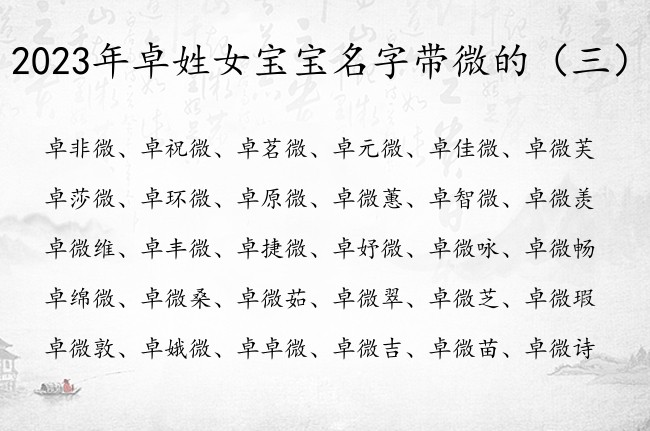 2023年卓姓女宝宝名字带微的（三）
卓非微、卓祝微、卓茗微、卓元微、卓佳微、卓微芙
卓莎微、卓环微、卓原微、卓微蕙、卓智微、卓微羡
卓微维、卓丰微、卓捷微、卓妤微、卓微咏、卓微畅
卓绵微、卓微桑、卓微茹、卓微翠、卓微芝、卓微瑕
卓微敦、卓娥微、卓卓微、卓微吉、卓微苗、卓微诗